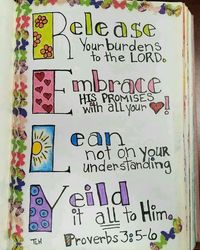 Release
Your burdens
to the LORD.
Embrace
HIS PROMISES
with all your ♥!
Lean
not on YOUR
understanding
Yeild
it all to Him.
TLH
Proverbs 3:5-6